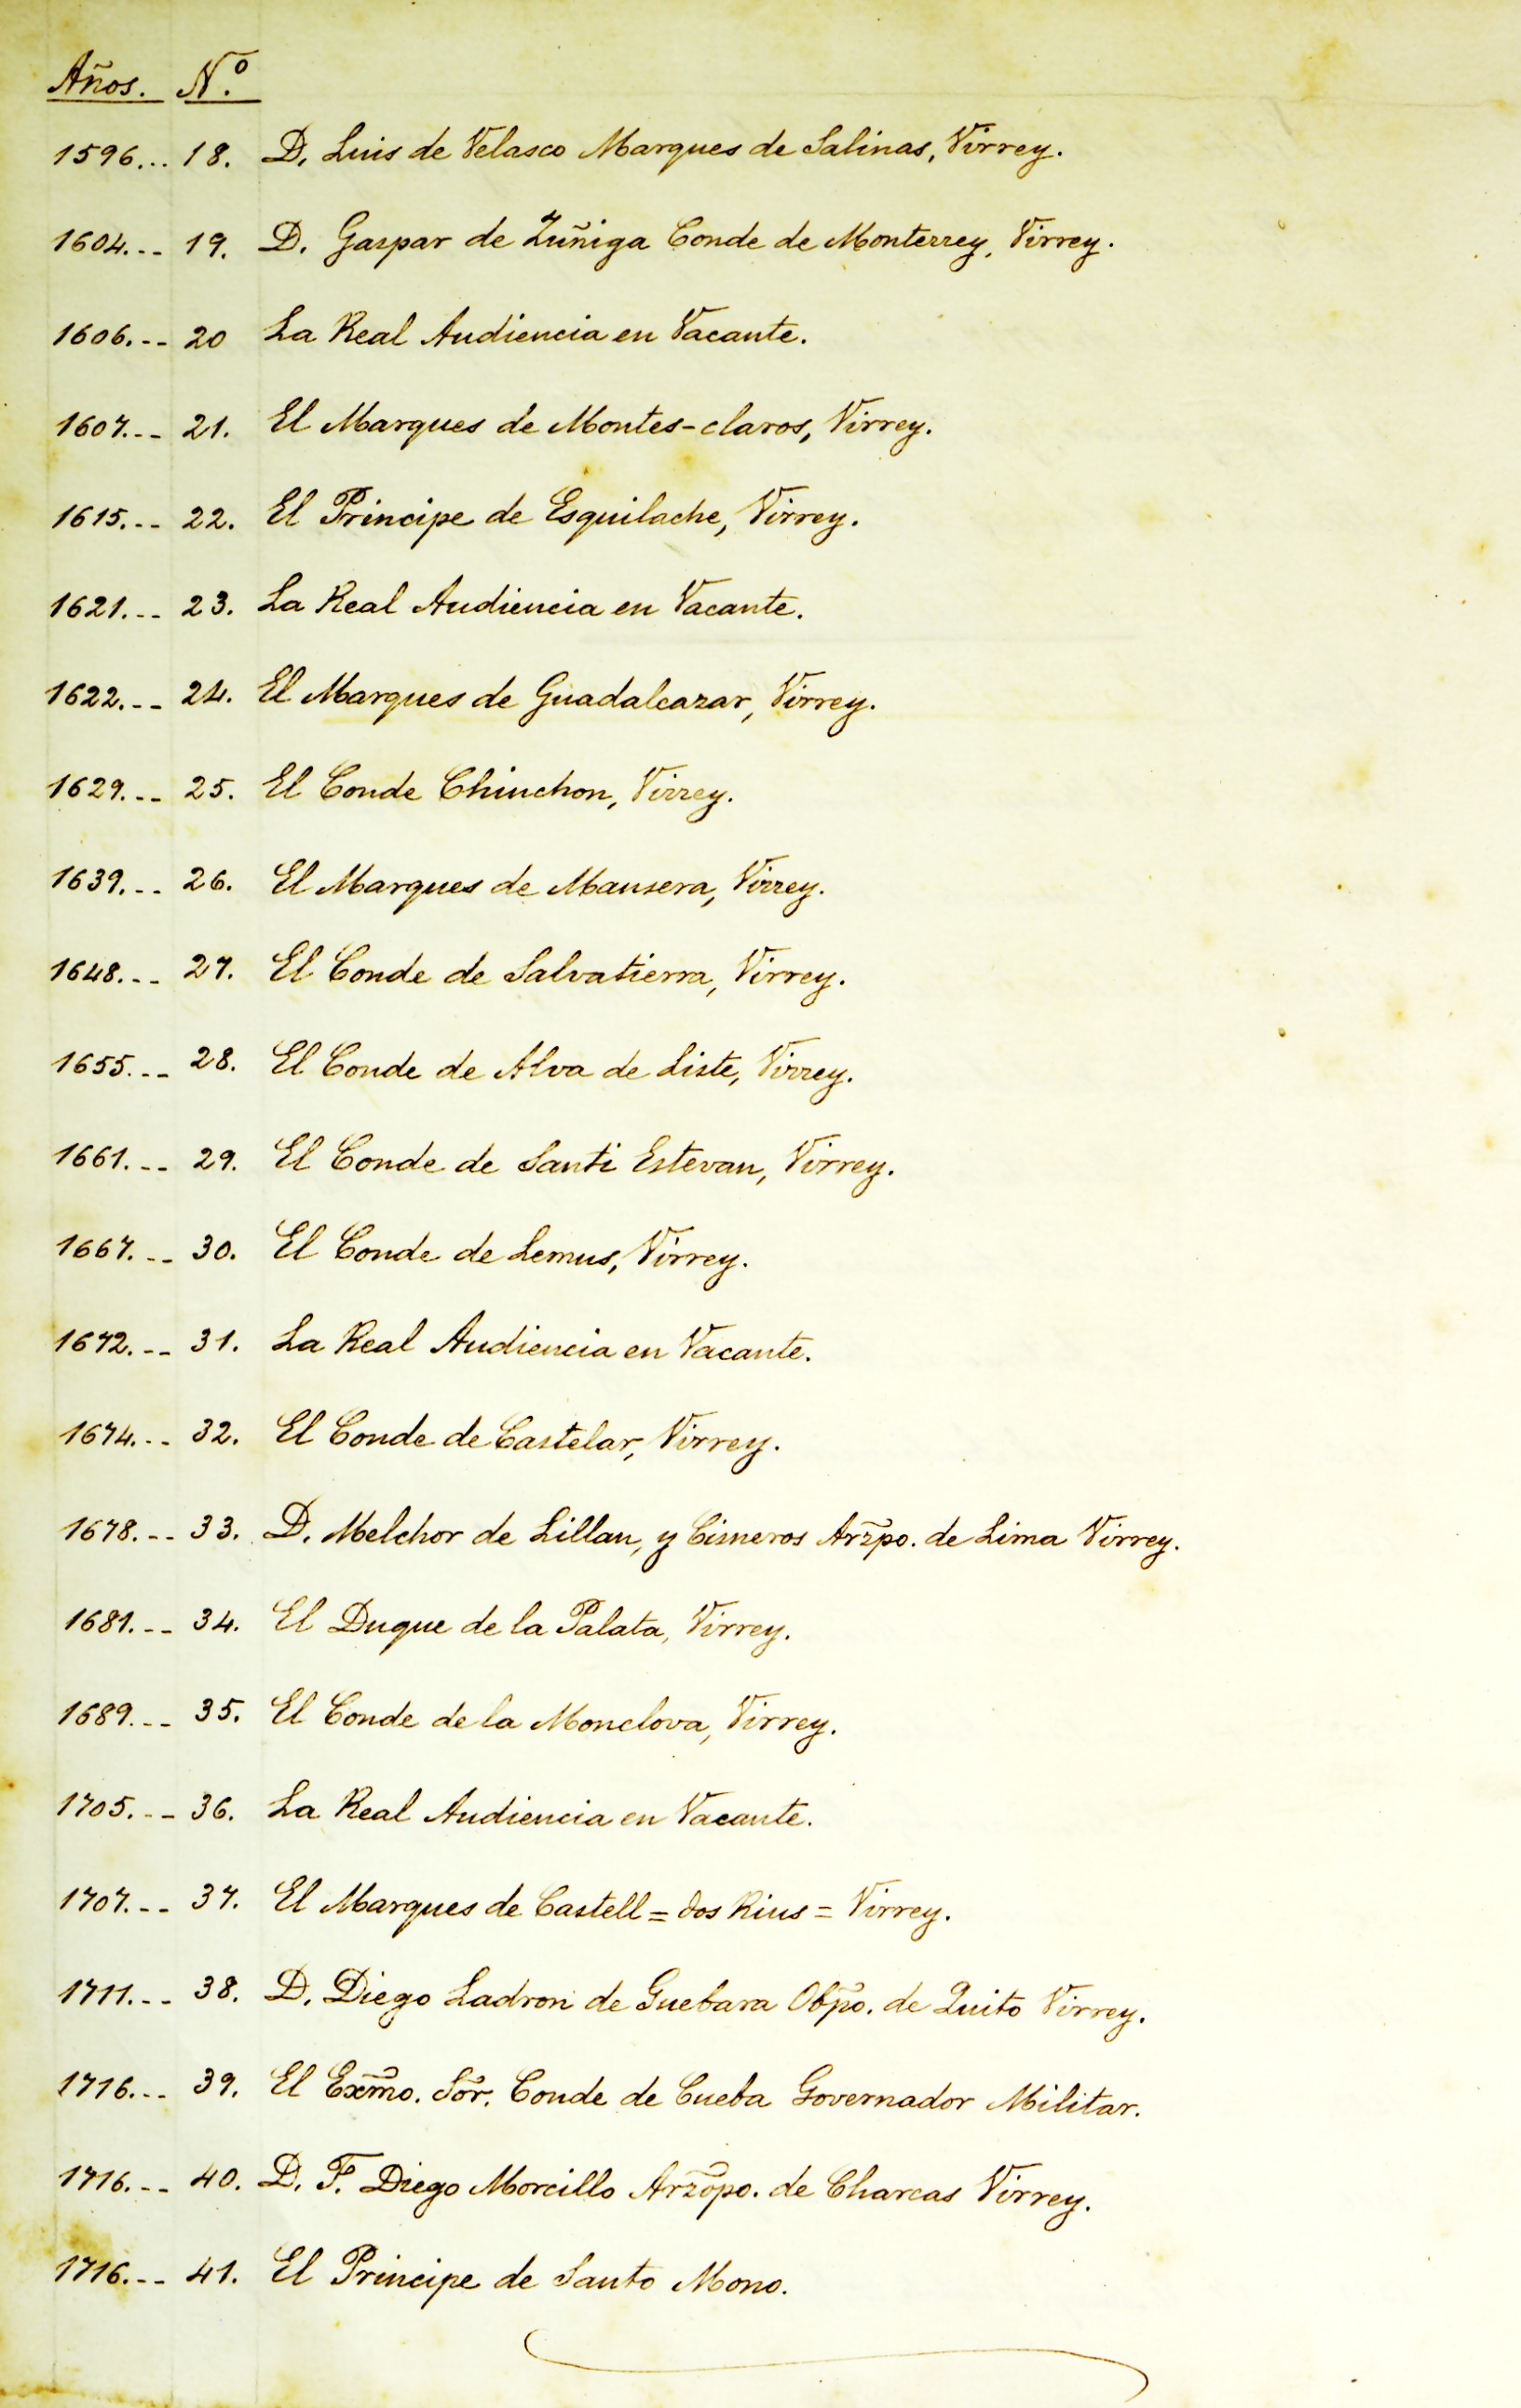 Años. Nº.
1596... 18. D. Luis de Velasco Marques de Salinas, Virrey.
1604... 19. D. Gaspar de Zuñiga Conde de Monterrey, Virrey.
1606.-- 20 La Real Audiencia en Vacante.
1607.-- 21. El Marques de Montes-claros, Virrey.
1615.-- 22. El Principe de Esquilache, Virrey.
1621.-- 23. La Real Audiencia en Vacante.
1622.-- 24. El Marques de Guadalcazar, Virrey.
1629.-- 25. El Conde Chinchon, Virrey.
1639.-- 26. El Marques de Mansera, Virrey.
1648.-- 27. El Conde de Salvatierra, Virrey.
1655.-- 28. El Conde de Alva de Liste, Virrey.
1661.-- 29. El Conde de Santi Estevan, Virrey.
1667.-- 30. El Conde de Lemus, Virrey.
1672.-- 31. La Real Audiencia en Vacante.
1674.-- 32. El Conde de Castelar, Virrey.
1678.-- 33. D. Melchor de Lillan, y Cisneros Arzpo. de Lima Virrey.
1681.-- 34. El Duque de la Palata, Virrey.
1689.-- 35. El Conde de la Monclova, Virrey.
1705.-- 36. La Real Audiencia en Vacante.
1707.-- 37. El Marques de Castell = dos Rius = Virrey.
1711.-- 38. D. Diego Ladron de Guebara Obpo. de Quito Virrey.
1716.-- 39. El Exmo. Sor. Conde de Cueba Governador Militar.
1716.-- 40. D. F. Diego Morcillo Arzopo. de Charcas Virrey.
1716.-- 41. El Principe de Santo Mono.